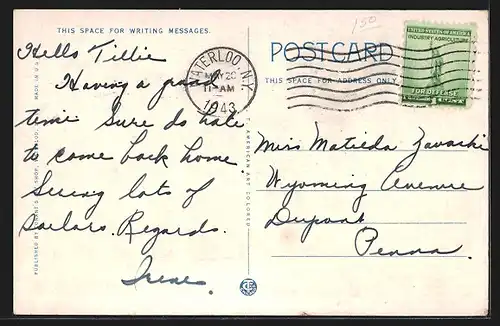 THIS SPACE FOR WRITING MESSAGES.
Hello Tillie
Having a grand
time Sure do hate
to come back home.
Seeing lots of
Sailors. Regards.
Irene.
MADE IN U.S.A.
PUBLISHED BY
C. T. AMERICAN ART COLORED
150
POSTCARD
THIS SPACE FOR ADDRESS ONLY
WATERLOO, N.Y.
MAY 20
11 AM
1943
UNITED STATES OF AMERICA
INDUSTRY AGRICULTURE
FOR DEFENSE
Miss Matilda
Wyoming Avenue
Dupont
Penna.